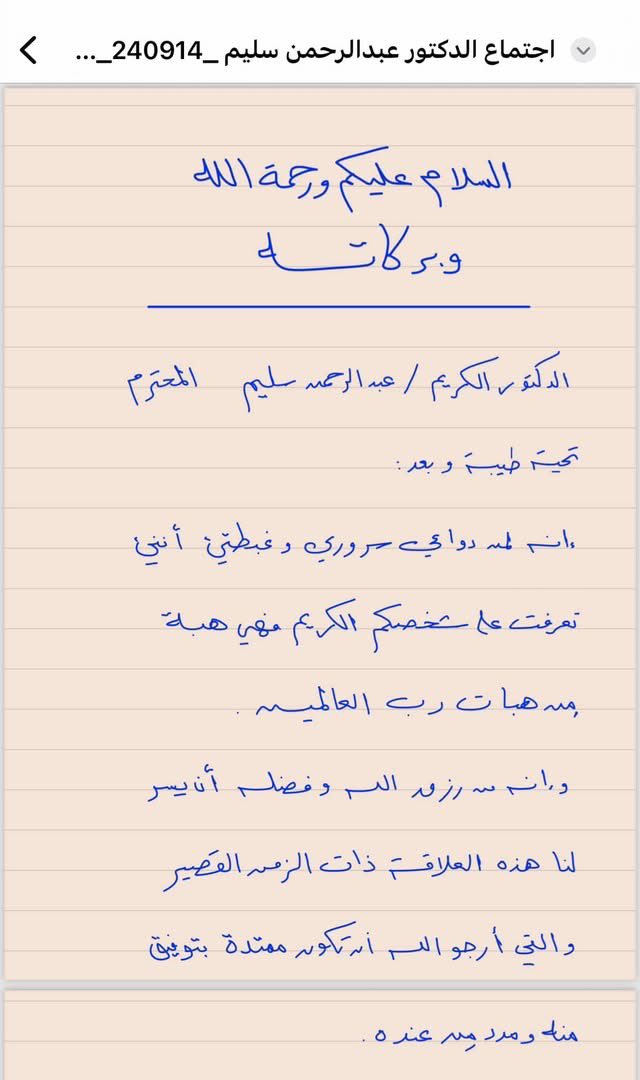 اجتماع الدكتور عبدالرحمن سليم _240914_...
السلام عليكم ورحمة الله
وبركاته
الدكتور الكريم / عبدالرحمن سليم المحترم
تحية طيبة وبعد :
إنه لمن دواعي سروري وغبطتي أنني
تعرفت على شخصكم الكريم فهي هبة
من هبات رب العالمين .
وإنه من رزق الله وفضله أن يسر
لنا هذه العلاقة ذات الزمن القصير
والتي أرجو الله أن تكون ممتدة بتوفيق
منه ومدد من عنده .